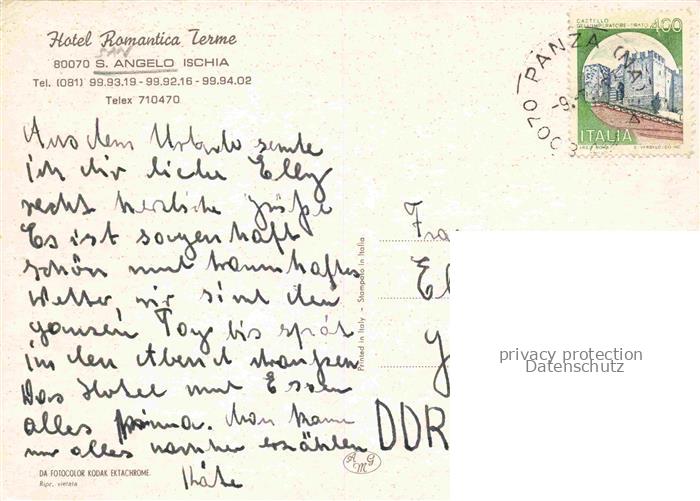 Hotel Romantica Terme
SAN
80070 S. ANGELO ISCHIA
Tel. (081) 99.93.19 - 99.92.16 - 99.94.02
Telex 710470
Aus dem Urlaub sende
ich dir liebe Elly
recht herzliche Grüße
Es ist sagenhaft
schön mit traumhaftes
Wetter wir sind den
ganzen Tag bis spät
in den Abend draußen
Das Hotel und Essen
alles prima. Man kann
nur alles nachher erzählen
Käte
DA FOTOCOLOR KODAK EKTACHROME.
Ripr. vietata
Printed in Italy - Stampato in Italia
AMG
CASTELLO
DELL'IMPERATORE - PRATO
400
ITALIA
80070 PANZA (NA)
-9.
Fra
El
DDR
privacy protection
Datenschutz